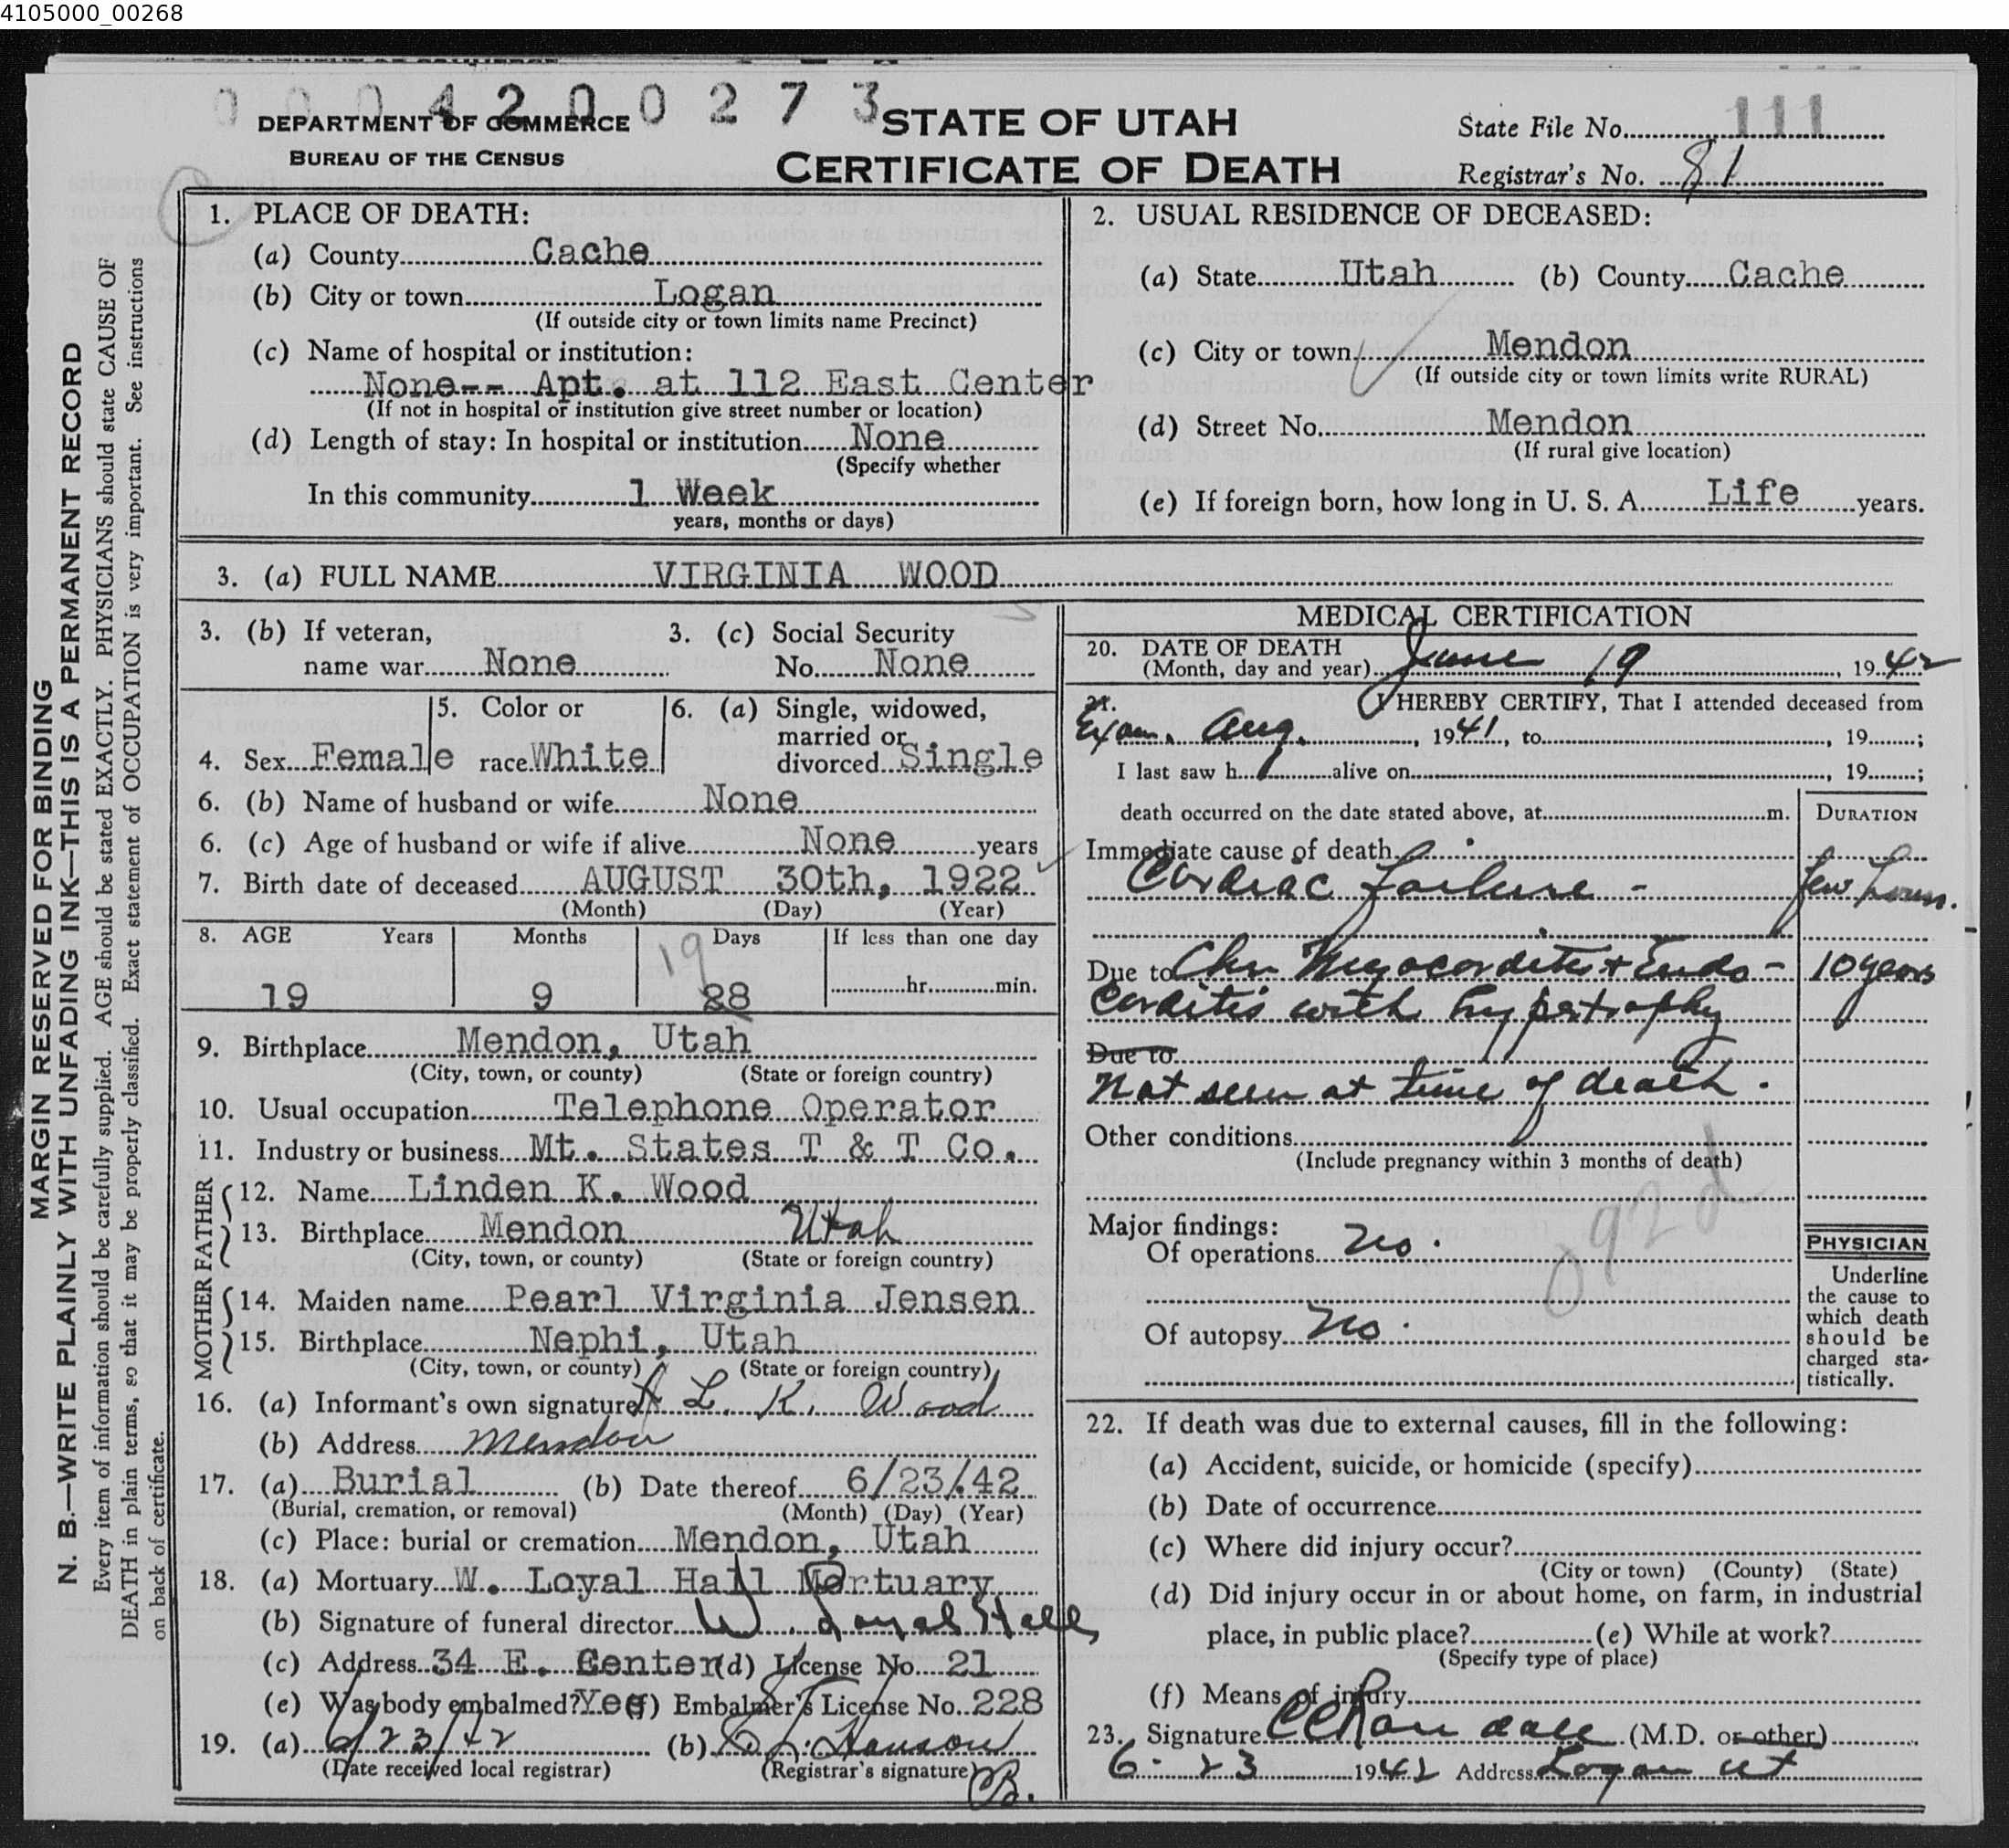 4105000_00268
0 0 0 4 2 0 0 2 7 3
DEPARTMENT OF COMMERCE
BUREAU OF THE CENSUS
STATE OF UTAH
CERTIFICATE OF DEATH
State File No. 111
Registrar's No. 81
MARGIN RESERVED FOR BINDING
N. B.—WRITE PLAINLY WITH UNFADING INK—THIS IS A PERMANENT RECORD
Every item of information should be carefully supplied. AGE should be stated EXACTLY. PHYSICIANS should state CAUSE OF
DEATH in plain terms, so that it may be properly classified. Exact statement of OCCUPATION is very important. See instructions
on back of certificate.
1. PLACE OF DEATH:
(a) County Cache
(b) City or town Logan
(If outside city or town limits name Precinct)
(c) Name of hospital or institution:
None-- Apt. at 112 East Center
(If not in hospital or institution give street number or location)
(d) Length of stay: In hospital or institution None
(Specify whether
In this community 1 Week
years, months or days)
2. USUAL RESIDENCE OF DECEASED:
(a) State Utah (b) County Cache
(c) City or town Mendon
(If outside city or town limits write RURAL)
(d) Street No. Mendon
(If rural give location)
(e) If foreign born, how long in U. S. A. Life years.
3. (a) FULL NAME VIRGINIA WOOD
3. (b) If veteran,
name war None
3. (c) Social Security
No. None
4. Sex Female
5. Color or
race White
6. (a) Single, widowed,
married or
divorced Single
6. (b) Name of husband or wife None
6. (c) Age of husband or wife if alive None years
7. Birth date of deceased AUGUST 30th, 1922
(Month) (Day) (Year)
8. AGE Years Months Days If less than one day
19
19 9 28 hr. min.
9. Birthplace Mendon, Utah
(City, town, or county) (State or foreign country)
10. Usual occupation Telephone Operator
11. Industry or business Mt. States T & T Co.
FATHER
12. Name Linden K. Wood
13. Birthplace Mendon Utah
(City, town, or county) (State or foreign country)
MOTHER
14. Maiden name Pearl Virginia Jensen
15. Birthplace Nephi, Utah
(City, town, or county) (State or foreign country)
16. (a) Informant's own signature L. K. Wood
(b) Address Mendon
17. (a) Burial (b) Date thereof 6/23/42
(Burial, cremation, or removal) (Month) (Day) (Year)
(c) Place: burial or cremation Mendon, Utah
18. (a) Mortuary W. Loyal Hall Mortuary
(b) Signature of funeral director W. Loyal Hall
(c) Address 34 E. Center (d) License No. 21
(e) Was body embalmed? Yes (f) Embalmer's License No. 228
19. (a) 6/23/42 (b) Hanson
(Date received local registrar) (Registrar's signature)
B.
MEDICAL CERTIFICATION
20. DATE OF DEATH
(Month, day and year) June 19, 1942
21. I HEREBY CERTIFY, That I attended deceased from
Exam. Aug., 1941, to , 19 ;
I last saw h alive on , 19 ;
death occurred on the date stated above, at m.
DURATION
Immediate cause of death
Cardiac failure - few hours.
Due to Chr. Myocarditis + Endo- 10 years
carditis with hypertrophy
Due to
Not seen at time of death.
Other conditions
(Include pregnancy within 3 months of death)
092d
Major findings:
Of operations no.
Of autopsy no.
PHYSICIAN
Underline
the cause to
which death
should be
charged sta-
tistically.
22. If death was due to external causes, fill in the following:
(a) Accident, suicide, or homicide (specify)
(b) Date of occurrence
(c) Where did injury occur?
(City or town) (County) (State)
(d) Did injury occur in or about home, on farm, in industrial
place, in public place? (e) While at work?
(Specify type of place)
(f) Means of injury
23. Signature CC Randall (M.D. or other)
6-23 1942 Address Logan Ut